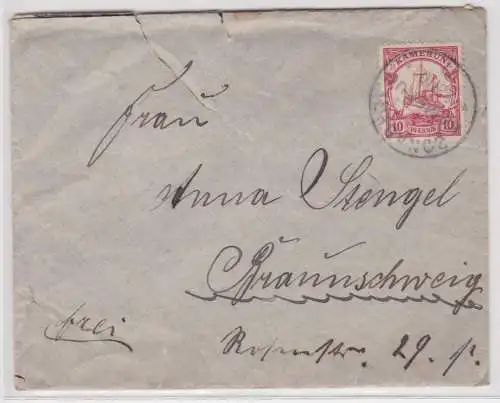 KAMERUN
10 PFENNIG 10
Frau
Anna Stengel
Braunschweig
frei
Rosenstr. 29. p.